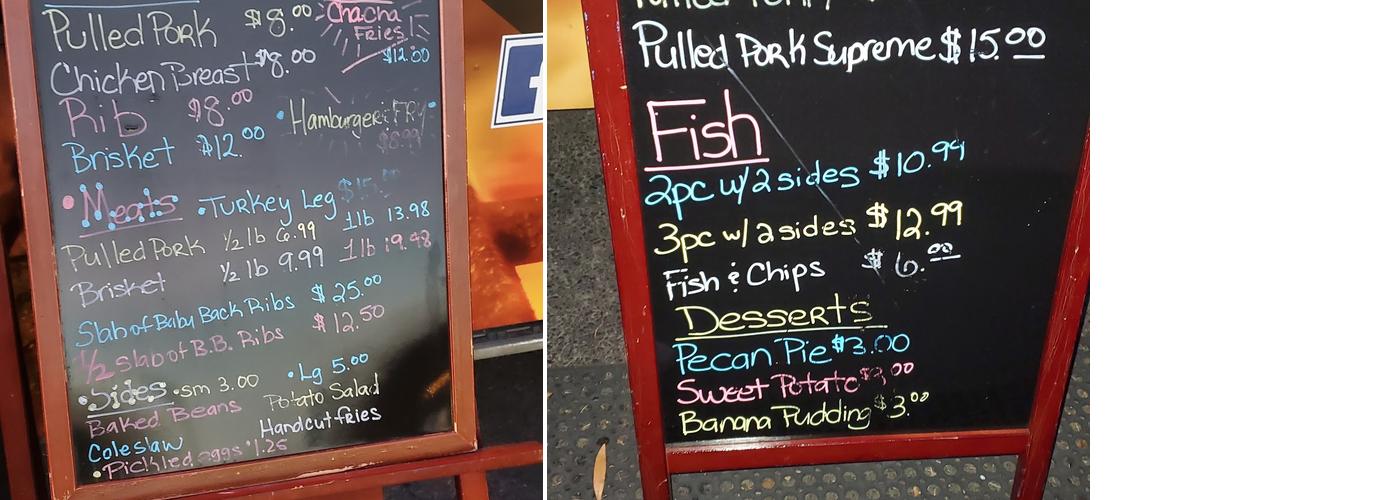 Pulled Pork $8.00
ChaCha
Fries!
$12.00
Chicken Breast $8.00
Rib $8.00
• Hamburger: FRY •
$6.99
Brisket $12.00
• Meats • Turkey Leg $15.00
Pulled Pork 1/2 lb 6.99 1lb 13.98
Brisket 1/2 lb 9.99 1lb 19.98
Slab of Baby Back Ribs $25.00
1/2 slab of B.B. Ribs $12.50
• Sides • sm 3.00 • Lg 5.00
Baked Beans Potato Salad
Coleslaw Handcut fries
• Pickled eggs $1.25
Pulled Pork Supreme $15.00
Fish
2pc w/2 sides $10.99
3pc w/2 sides $12.99
Fish & Chips $6.00
Desserts
Pecan Pie $3.00
Sweet Potato $3.00
Banana Pudding $3.00